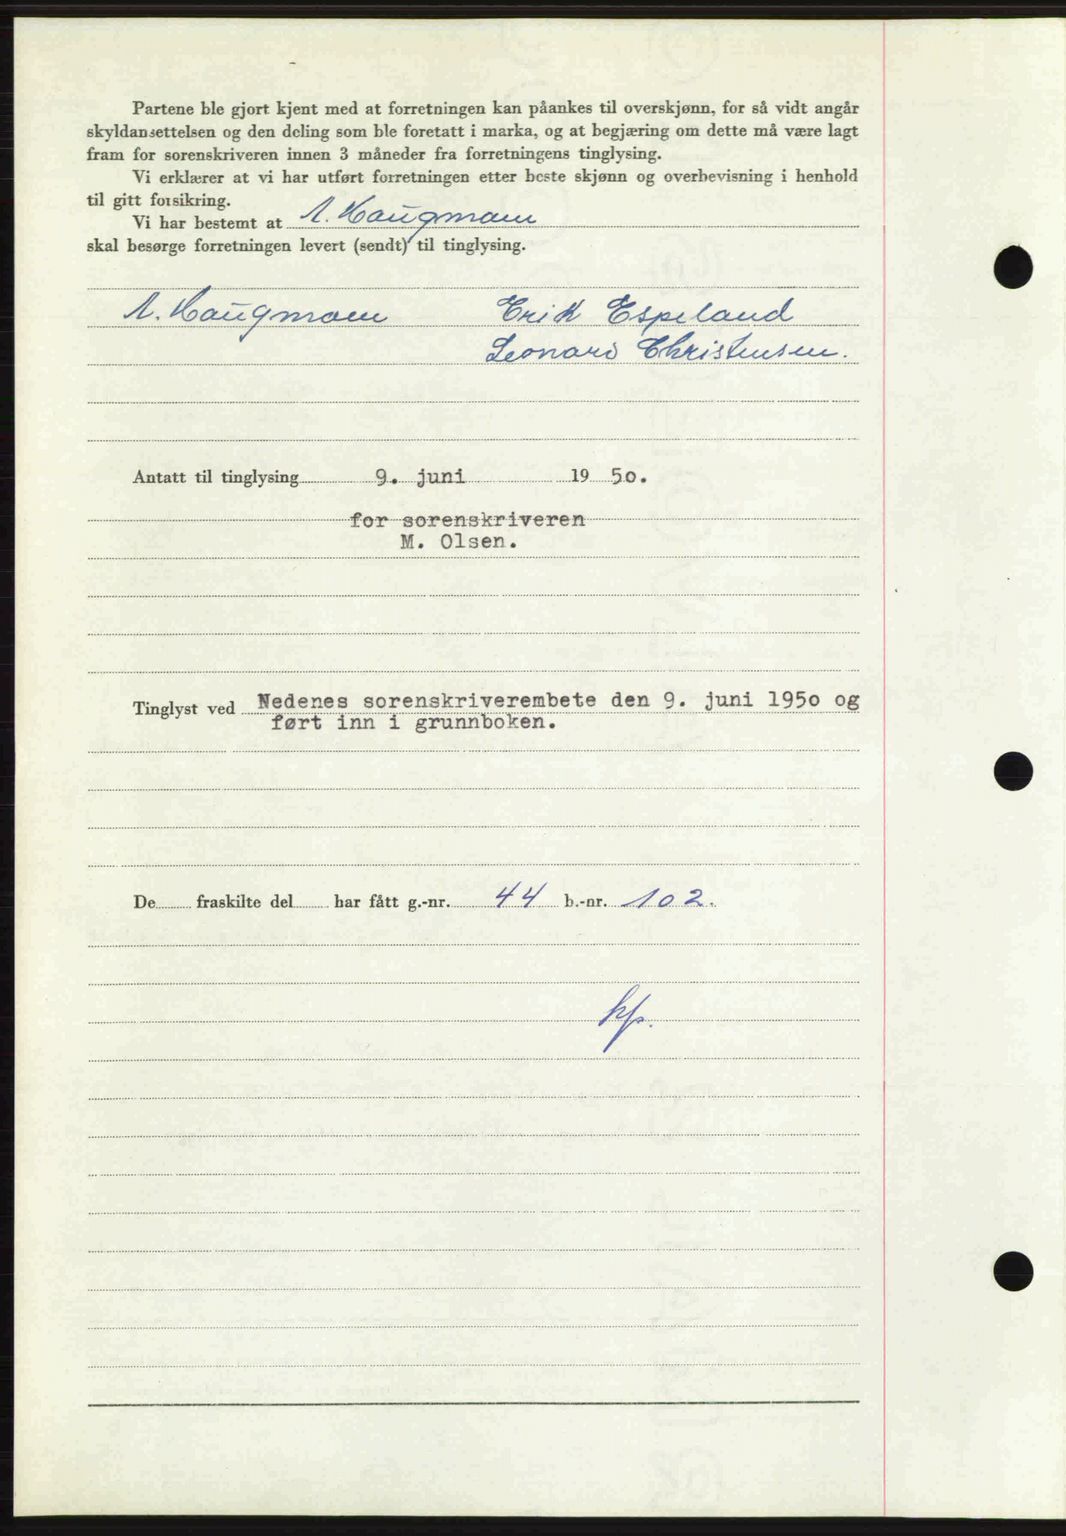 Partene ble gjort kjent med at forretningen kan påankes til overskjønn, for så vidt angår
skyldansettelsen og den deling som ble foretatt i marka, og at begjæring om dette må være lagt
fram for sorenskriveren innen 3 måneder fra forretningens tinglysing.
Vi erklærer at vi har utført forretningen etter beste skjønn og overbevisning i henhold
til gitt forsikring.
Vi har bestemt at A. Haugmoen
skal besørge forretningen levert (sendt) til tinglysing.
A. Haugmoen Erik Espeland
Leonard Christensen.
Antatt til tinglysing 9. juni 19 50.
for sorenskriveren
M. Olsen.
Tinglyst ved Nedenes sorenskriverembete den 9. juni 1950 og
ført inn i grunnboken.
De fraskilte del har fått g.-nr. 44 b.-nr. 102.